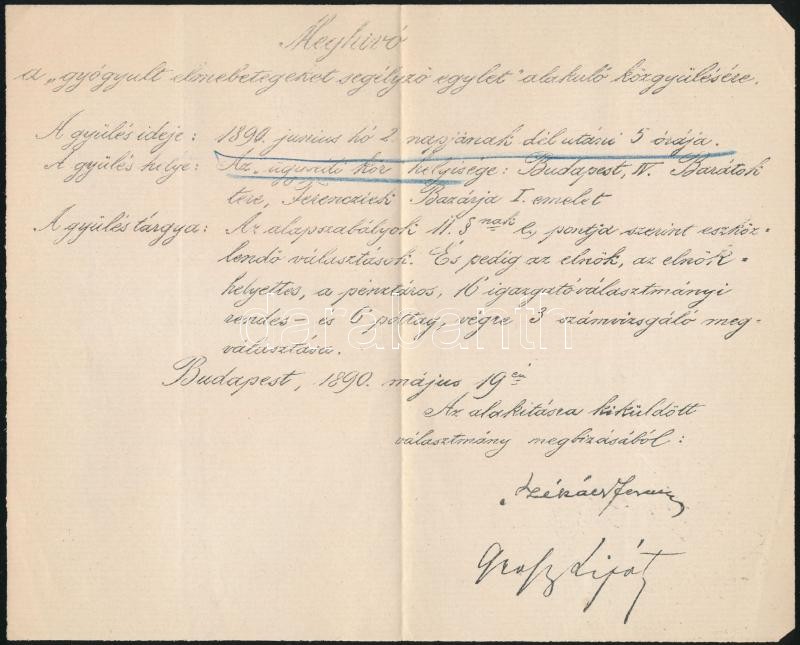 Meghivó
a „gyógyult elmebetegeket segélyző egylet" alakuló közgyülésére.
A gyülés ideje: 1890. junius hó 2. napjának dél utáni 5 órája.
A gyülés helye: Az „ügyvédi kör" helyisége: Budapest, IV. Barátok
tere, Ferencziek Bazárja I. emelet
A gyülés tárgya: Az alapszabályok 11. § nak b, pontja szerint eszköz-
lendő választások. És pedig az elnök, az elnök-
helyettes, a pénztáros, 16 igazgatóválasztmányi
rendes - és 6 póttag, végre 3 számvizsgáló meg-
választása.
Budapest, 1890. május 19 én
Az alakitásra kiküldött
választmány megbizásából:
Székács Ferencz
Grosz Lipót
darabanth